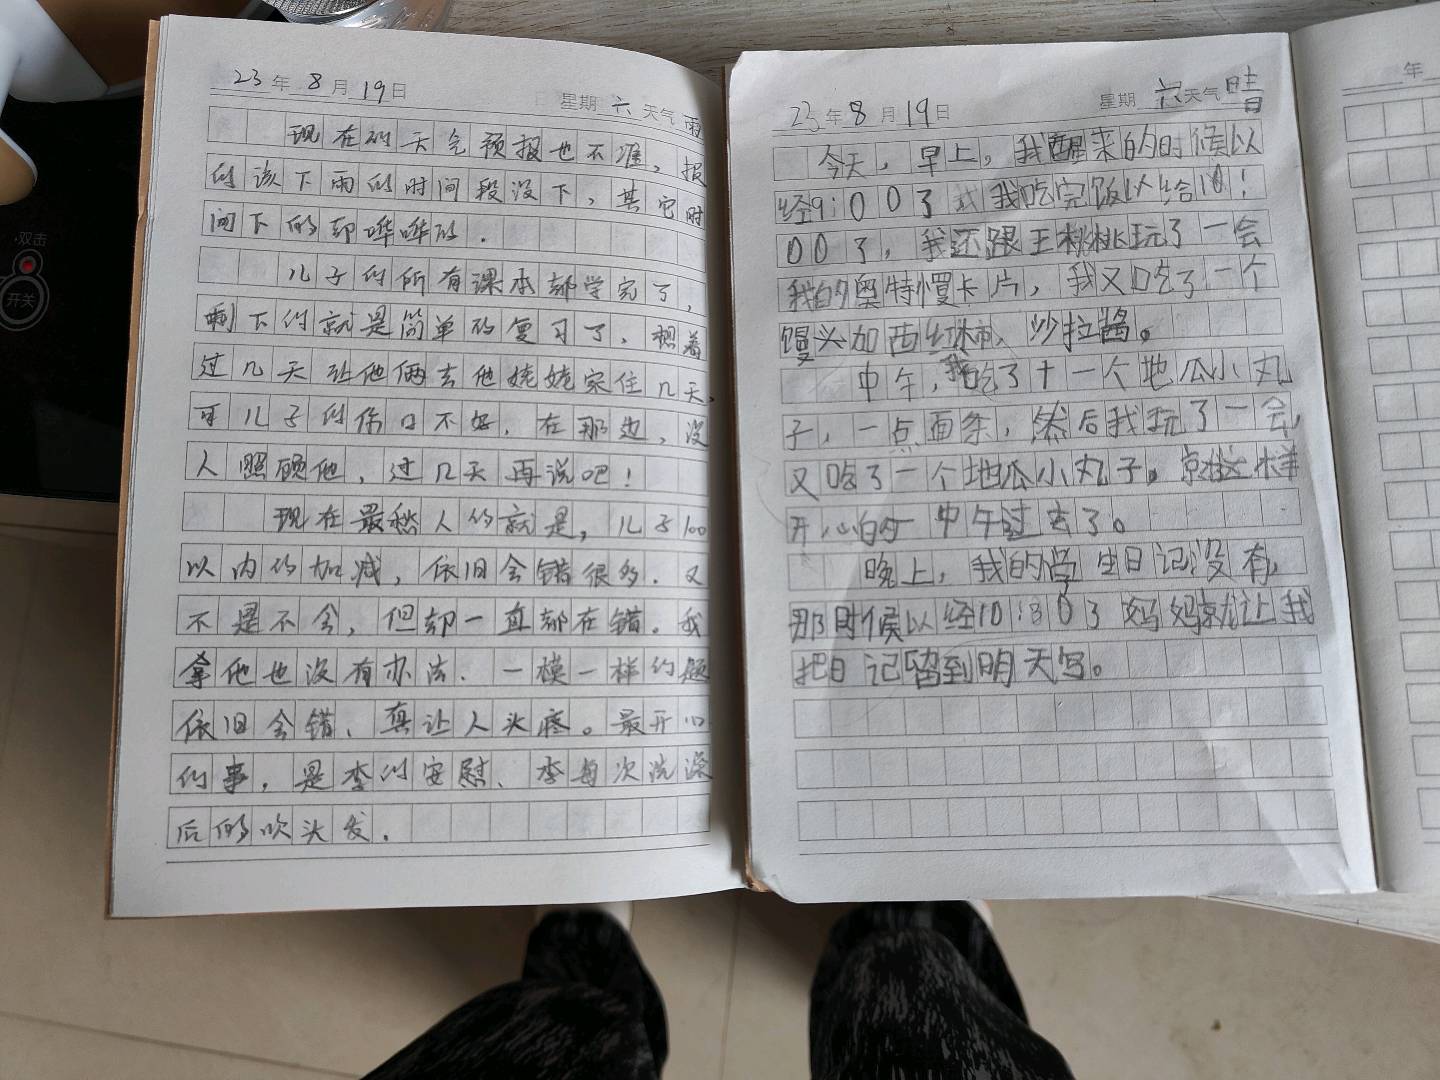 ·双击
开关
23年 8月 19日 星期 六 天气 雨
现在的天气预报也不准,报
的该下雨的时间段没下,其它时
间下的却哗哗的.
儿子的所有课本都学完了,
剩下的就是简单的复习了,想着
过几天让他俩去他姥姥家住几天,
可儿子的伤口不好,在那边,没
人照顾他,过几天再说吧!
现在最愁人的就是,儿子100
以内的加减,依旧会错很多.又
不是不会,但却一直都在错.我
拿他也没有办法.一模一样的题
依旧会错、真让人头疼。最开心
的事,是李的安慰、李每次洗澡
后的吹头发.
23年 8月 19日 星期 六 天气 晴
今天,早上,我醒来的时候以
经9:00了 我吃完饭以给10:
00了,我还跟王桃桃玩了一会
我的奥特慢卡片,我又吃了一个
馒头加西红柿、沙拉酱。
中午,我吃了十一个地瓜小丸
子,一点面条,然后我玩了一会,
又吃了一个地瓜小丸子。就这样
开心的中午过去了。
晚上,我的学生日记没有,
那时候以经10:30了妈妈就让我
把日记留到明天写。
年